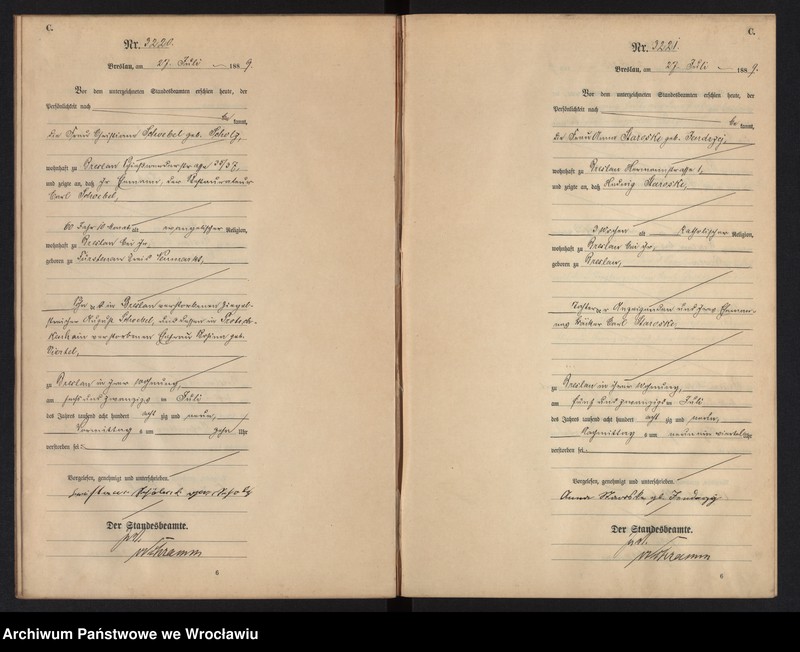 C.
Nr. 3220.
Breslau, am 27. Juli 1889.
Vor dem unterzeichneten Standesbeamten erschien heute, der
Persönlichkeit nach
be kannt,
die Frau Christiane Schoebel geb. Scholz,
wohnhaft zu Breslau Schießwerderstraße
und zeigte an, daß ihr Ehemann, der Restaurateur
Carl Schoebel,
60 Jahr 10 Monat alt evangelischer Religion,
wohnhaft zu Breslau bei ihr,
geboren zu Kreis Neumarkt,
Sohn des in Breslau verstorbenen
August Schoebel, und dessen in
verstorbenen Ehefrau Rosina geb.
zu Breslau in ihrer Wohnung,
am sechs und zwanzigsten Juli
des Jahres tausend acht hundert acht zig und neun,
Vormittag s um zehn Uhr
verstorben sei.
Vorgelesen, genehmigt und unterschrieben.
geb. Scholz
Der Standesbeamte.
Schramm
6
C.
Nr. 3221.
Breslau, am 27. Juli 1889.
Vor dem unterzeichneten Standesbeamten erschien heute, der
Persönlichkeit nach
be kannt,
die Frau Anna Staroske, geb. Jendrzej,
wohnhaft zu Breslau Hermannstraße 1,
und zeigte an, daß Hedwig Staroske,
3 Wochen alt katholischer Religion,
wohnhaft zu Breslau bei ihr,
geboren zu Breslau,
Tochter der Anzeigenden und ihres Eheman-
nes Carl Staroske,
zu Breslau in ihrer Wohnung,
am fünf und zwanzigsten Juli
des Jahres tausend acht hundert acht zig und neun,
Nachmittag s um viertel Uhr
verstorben sei.
Vorgelesen, genehmigt und unterschrieben.
Anna Staroske
Der Standesbeamte.
Schramm
6
Archiwum Państwowe we Wrocławiu